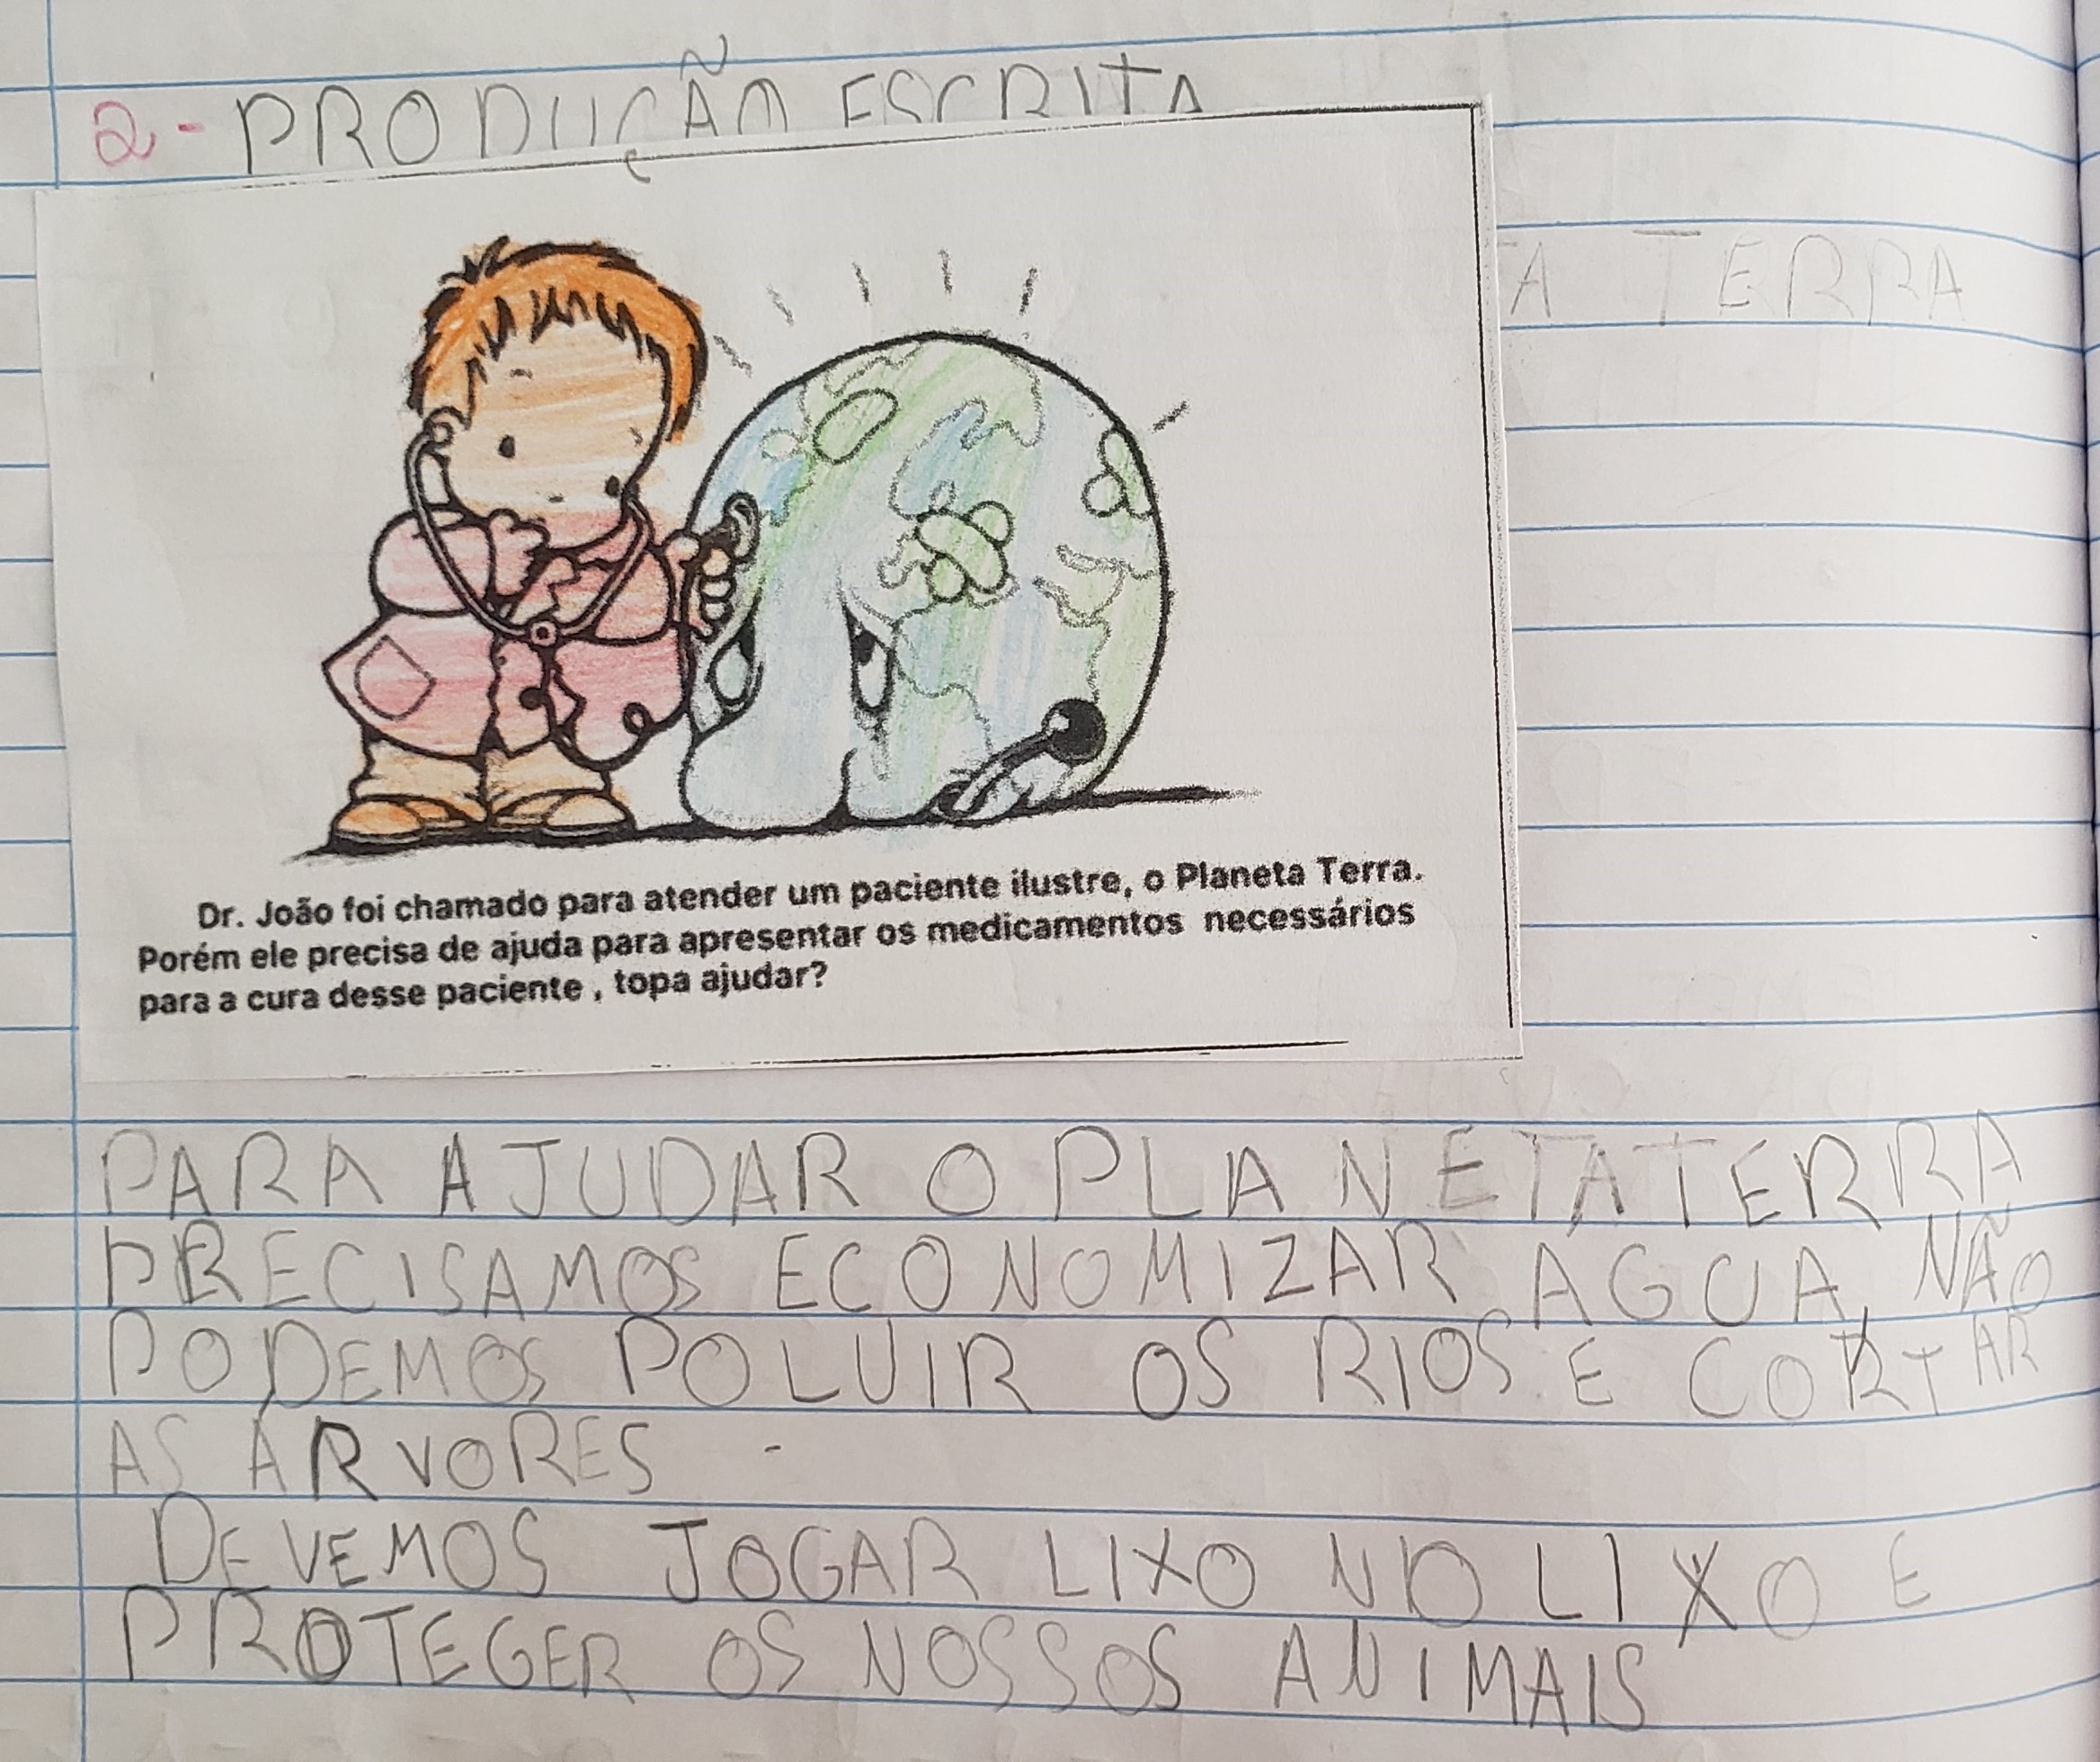 2- PRODUÇÃO ESCRITA
A TERRA
Dr. João foi chamado para atender um paciente ilustre, o Planeta Terra.
Porém ele precisa de ajuda para apresentar os medicamentos necessários
para a cura desse paciente , topa ajudar?
PARA AJUDAR O PLANETA TERRA
PRECISAMOS ECONOMIZAR ÁGUA, NÃO
PODEMOS POLUIR OS RIOS E CORTAR
AS ÁRVORES -
DEVEMOS JOGAR LIXO NO LIXO E
PROTEGER OS NOSSOS ANIMAIS